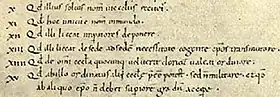 X Qđ illius solius nom̄ in eccl̄iis recitet̄.
XI Qđ hoc unicū ē nom̄ in mundo.
XII Qđ illi liceat imp̄atores deponere.
XIII Qđ illi liceat de sede ad sedē necessitate cogente ep̄os transmutare.
XIIII Qđ de om̄i eccl̄a quocunq; voluerit clericū valeat ordinare.
XV Qđ ab illo ordinatus alii eccl̄ę p̄eē potest. sed n̄ militare. et qđ
ab aliquo ep̄o n̄ debet superiorē gradū accipe.